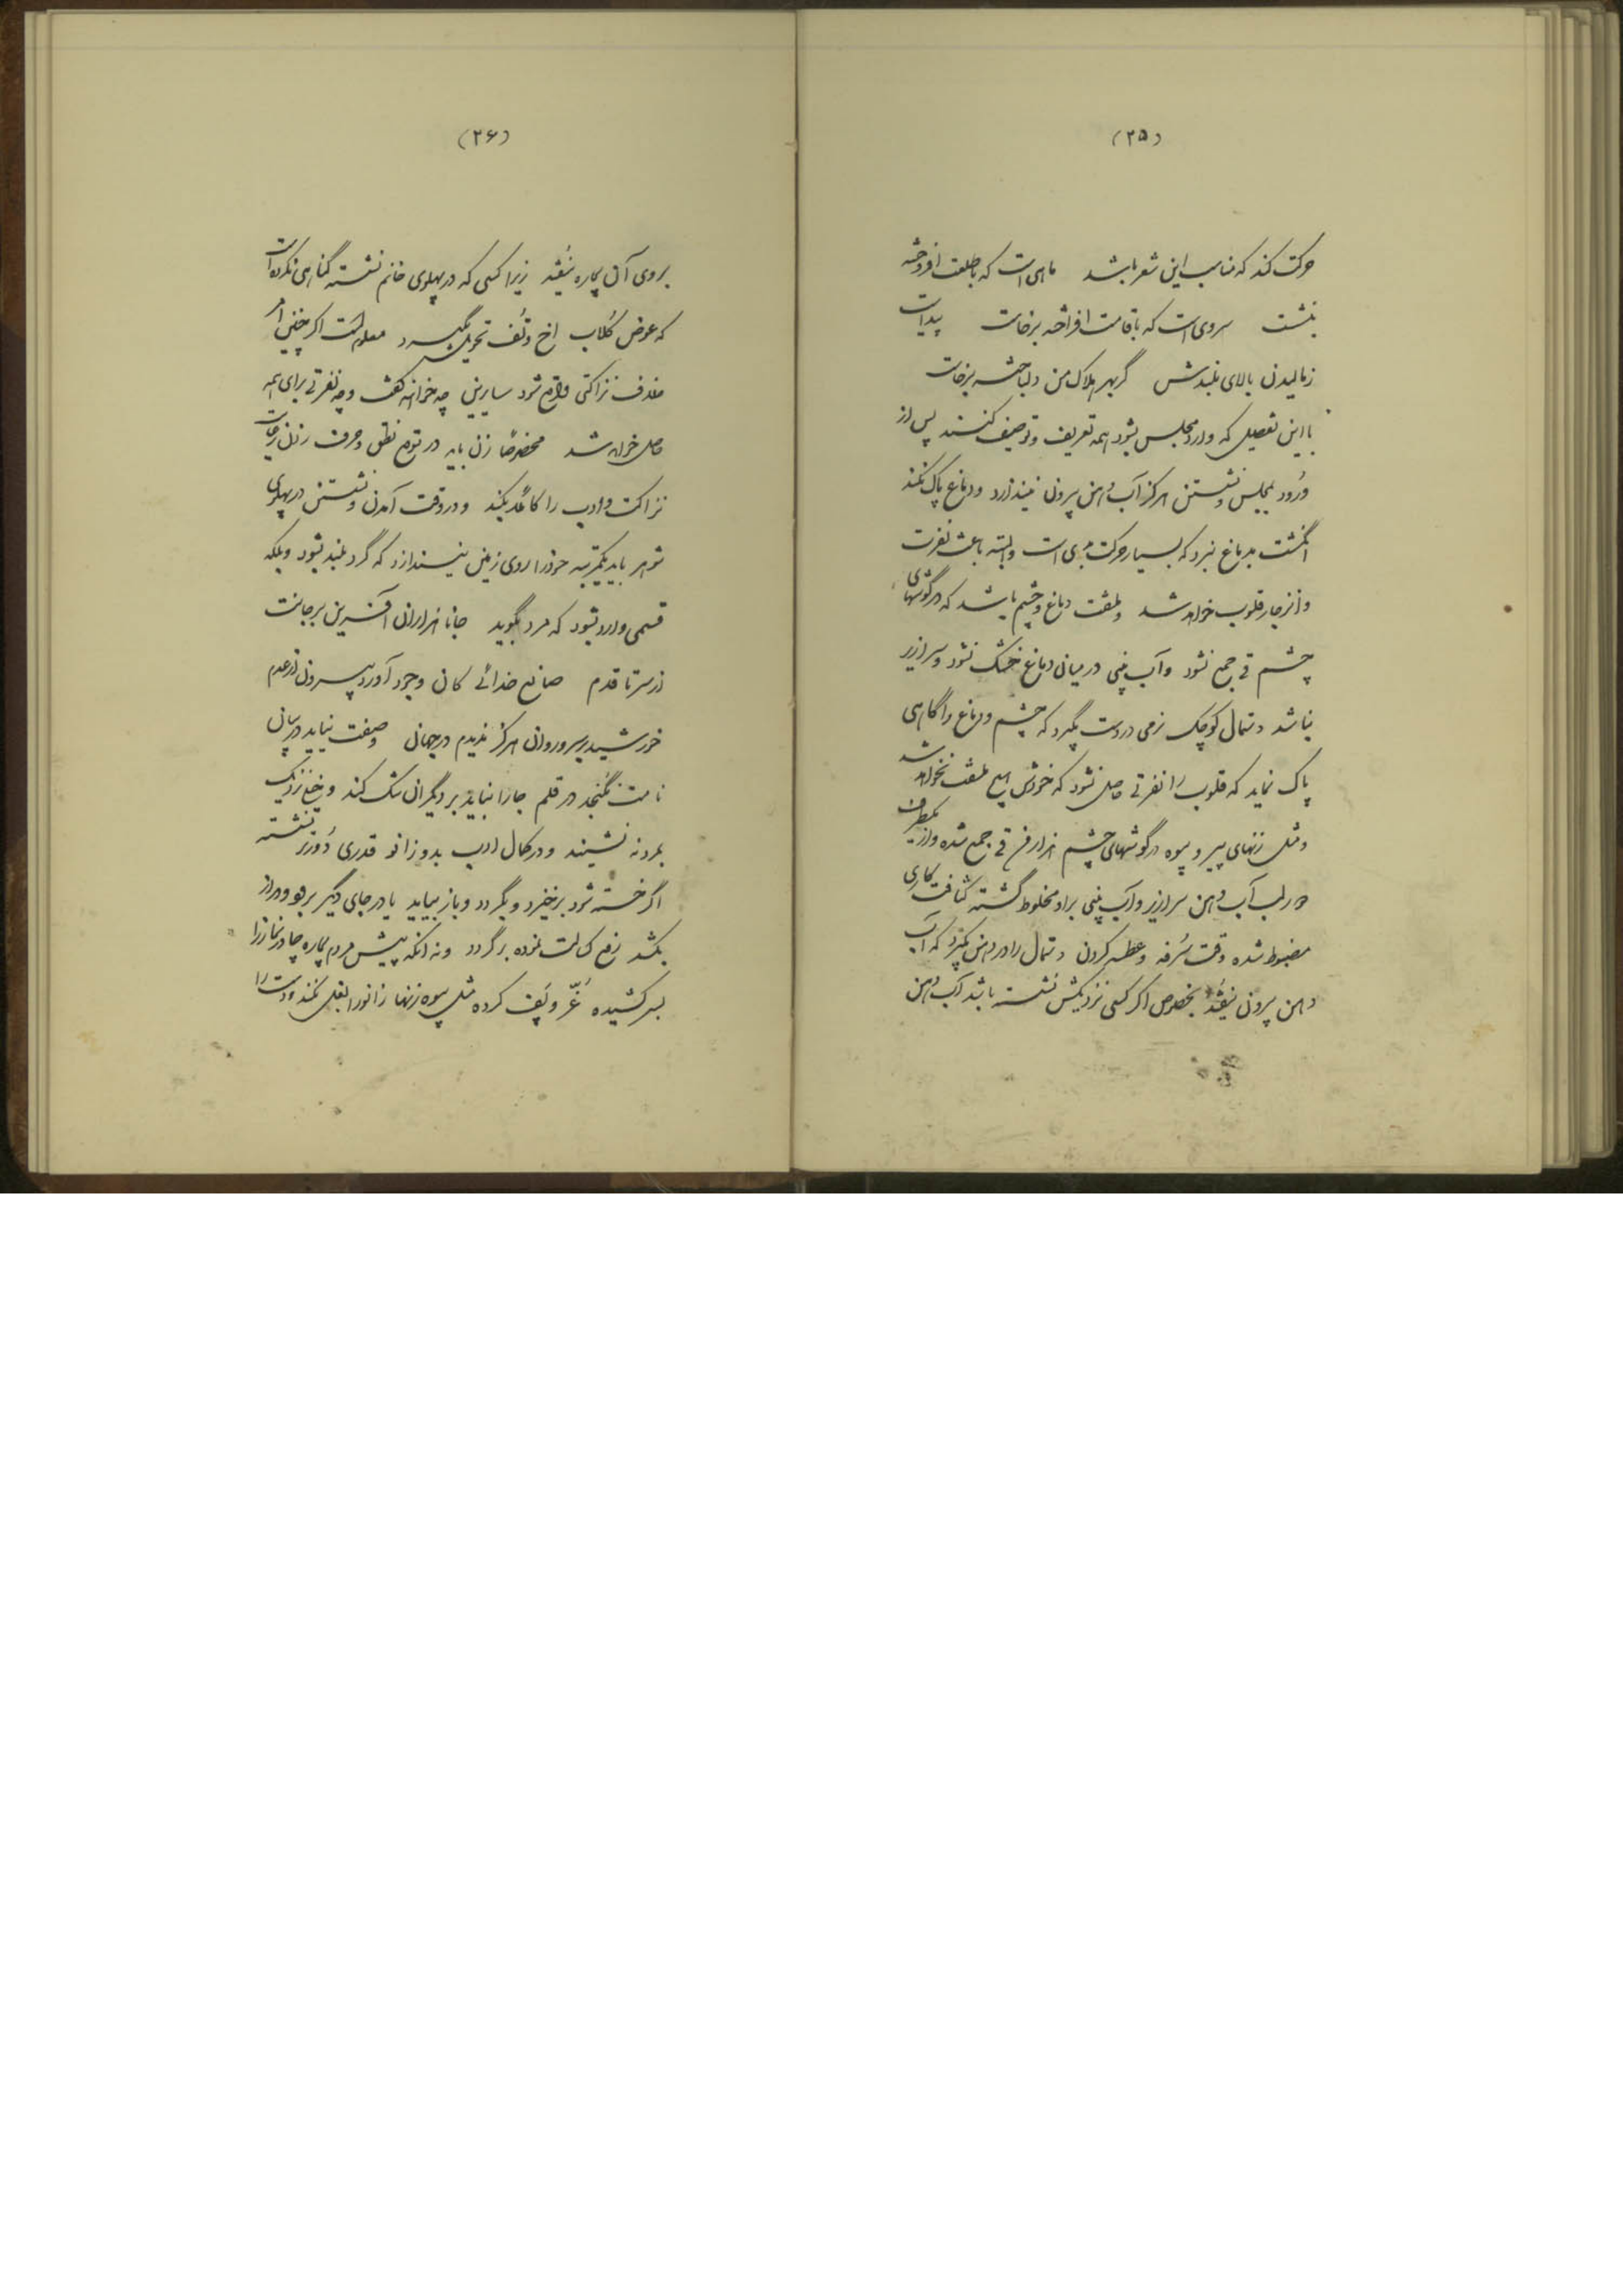 (۲۵)
حرکت کند که مناسب این شعر باشد ماهی است که با طلعت افروخته
بنشست سرویست که با قامت افراخته برخاست پیداست
زمالیدن بالای بلندش گر بهر هلاک من دلباخته برخاست
با این تفصیل که وارد مجلس بشود همه تعریف و توصیف کنند پس از
ورود بمجلس و نشستن هرگز آب دهن بیرون نیندازد و دماغ پاک نکند
انگشت بدماغ نبرد که بسیار حرکت بدی است و البته باعث نفرت
و انزجار قلوب خواهد شد و ملتفت دماغ و چشم باشد که در گوشهای
چشم قی جمع نشود و آب بینی در میان دماغ خشک نشود و سرازیر
نباشد دستمال کوچک نرمی در دست بگیرد که چشم و دماغ را گاهی
پاک نماید که قلوب را نفرتی حاصل نشود که خودش هیچ ملتفت نخواهد شد
و مثل زنهای پیر و بیوه در گوشهای چشم هزار من قی جمع شده و از یکطرف
در لب آب دهن سرازیر و آب بینی براو مخلوط گشته کثافت کاری
مضبوط شده وقت سُرفه و عطسه کردن دستمال را در دهن بگیرد که آب
دهن بیرون نیفتد بخصوص اگر کسی نزدیکش نشسته باشد آب دهن
(۲۶)
بروی آن بیچاره نیفتد زیرا کسی که در پهلوی خانم نشسته گناهی نکرده است
که عوض گلاب اخ و تُف تحویل بگیرد معلوم است اگر چنین امر
خلاف نزاکتی واقع شود سایرین چه خواهند گفت و چه نفرتی برای همه
حاصل خواهد شد مخصوصاً زن باید در نطق و حرف زدن
نزاکت و ادب را کاملاً بکند و در وقت آمدن و نشستن در پهلوی
شوهر باید یکمرتبه خود را روی زمین نیندازد که گرد بلند بشود و بلکه
قسمی وارد بشود که مرد بگوید جانا هزاران آفرین بر جانت
از سر تا قدم صانع خدائی کان وجود آورد بیرون از عدم
خورشید بر سرو روان هرگز ندیدم در جهان وصفت نیاید در بیان
نامت نگنجد در قلم جا را نباید بر دیگران تنگ کند و خیلی نزدیک
بمرد نه نشیند و در کمال ادب بدو زانو قدری دورتر نشسته
اگر خسته شود برخیزد و بگردد و باز بیاید یا در جای دیگر برود و دراز
بکشد رفع کسالت نموده برگردد و نه آنکه پیش مردم بیچاره چادر نماز را
بسر کشیده غُرّ و پُف کرده مثل بیوه زنها زانو را بغل نکند و دست را